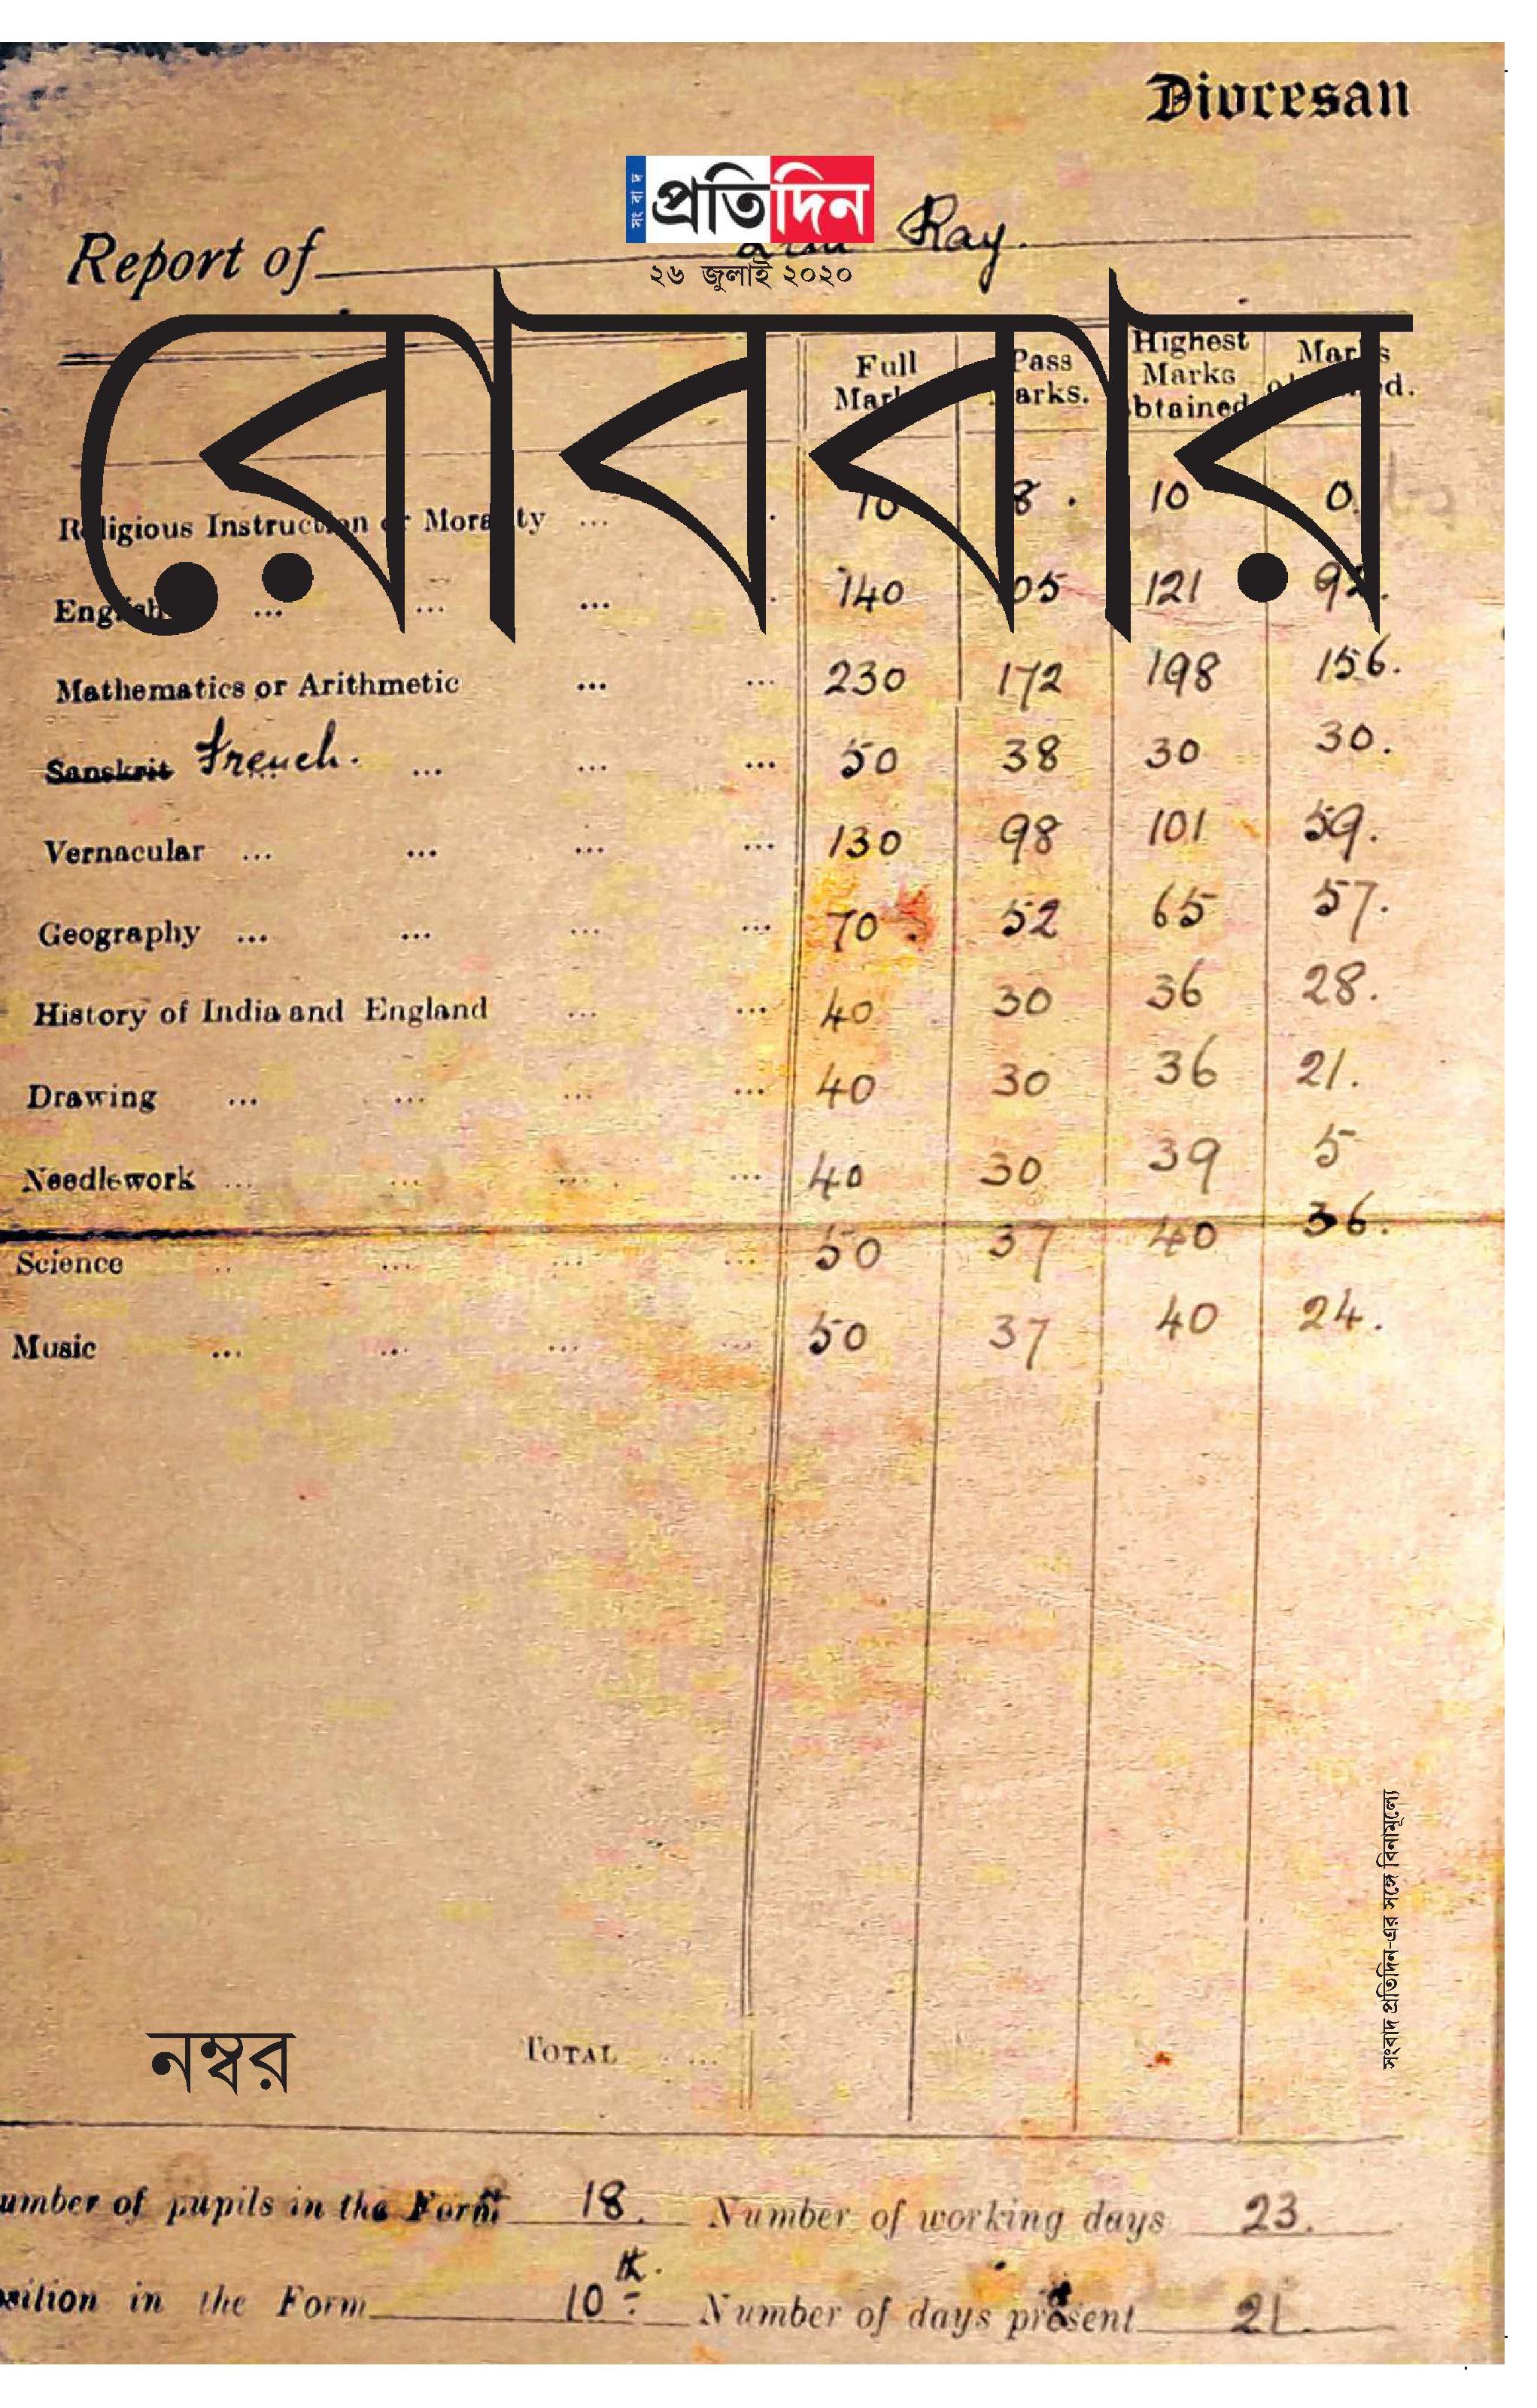 Diocesan
সংবাদ প্রতিদিন
Report of Ray.
২৬ জুলাই ২০২০
রোববার
Full Marks Pass Marks. Highest Marks obtained Marks obtained.
Religious Instruction or Morality ... 10 8 . 10 0.
English ... ... ... 140 105 121
Mathematics or Arithmetic ... ... 230 172 198 156.
Sanskrit French. ... ... ... 50 38 30 30.
Vernacular ... ... ... ... 130 98 101 59.
Geography ... ... ... ... 70 . 52 65 57.
History of India and England ... ... 40 30 36 28.
Drawing ... ... ... ... 40 30 36 21.
Needlework ... ... ... ... 40 30 39 5
Science .. ... ... ... 50 37 40 36.
Music ... ... ... ... 50 37 40 24.
সংবাদ প্রতিদিন-এর সঙ্গে বিনামূল্যে
নম্বর
TOTAL ...
umber of pupils in the Form 18. Number of working days 23.
osition in the Form 10th. Number of days present 21.